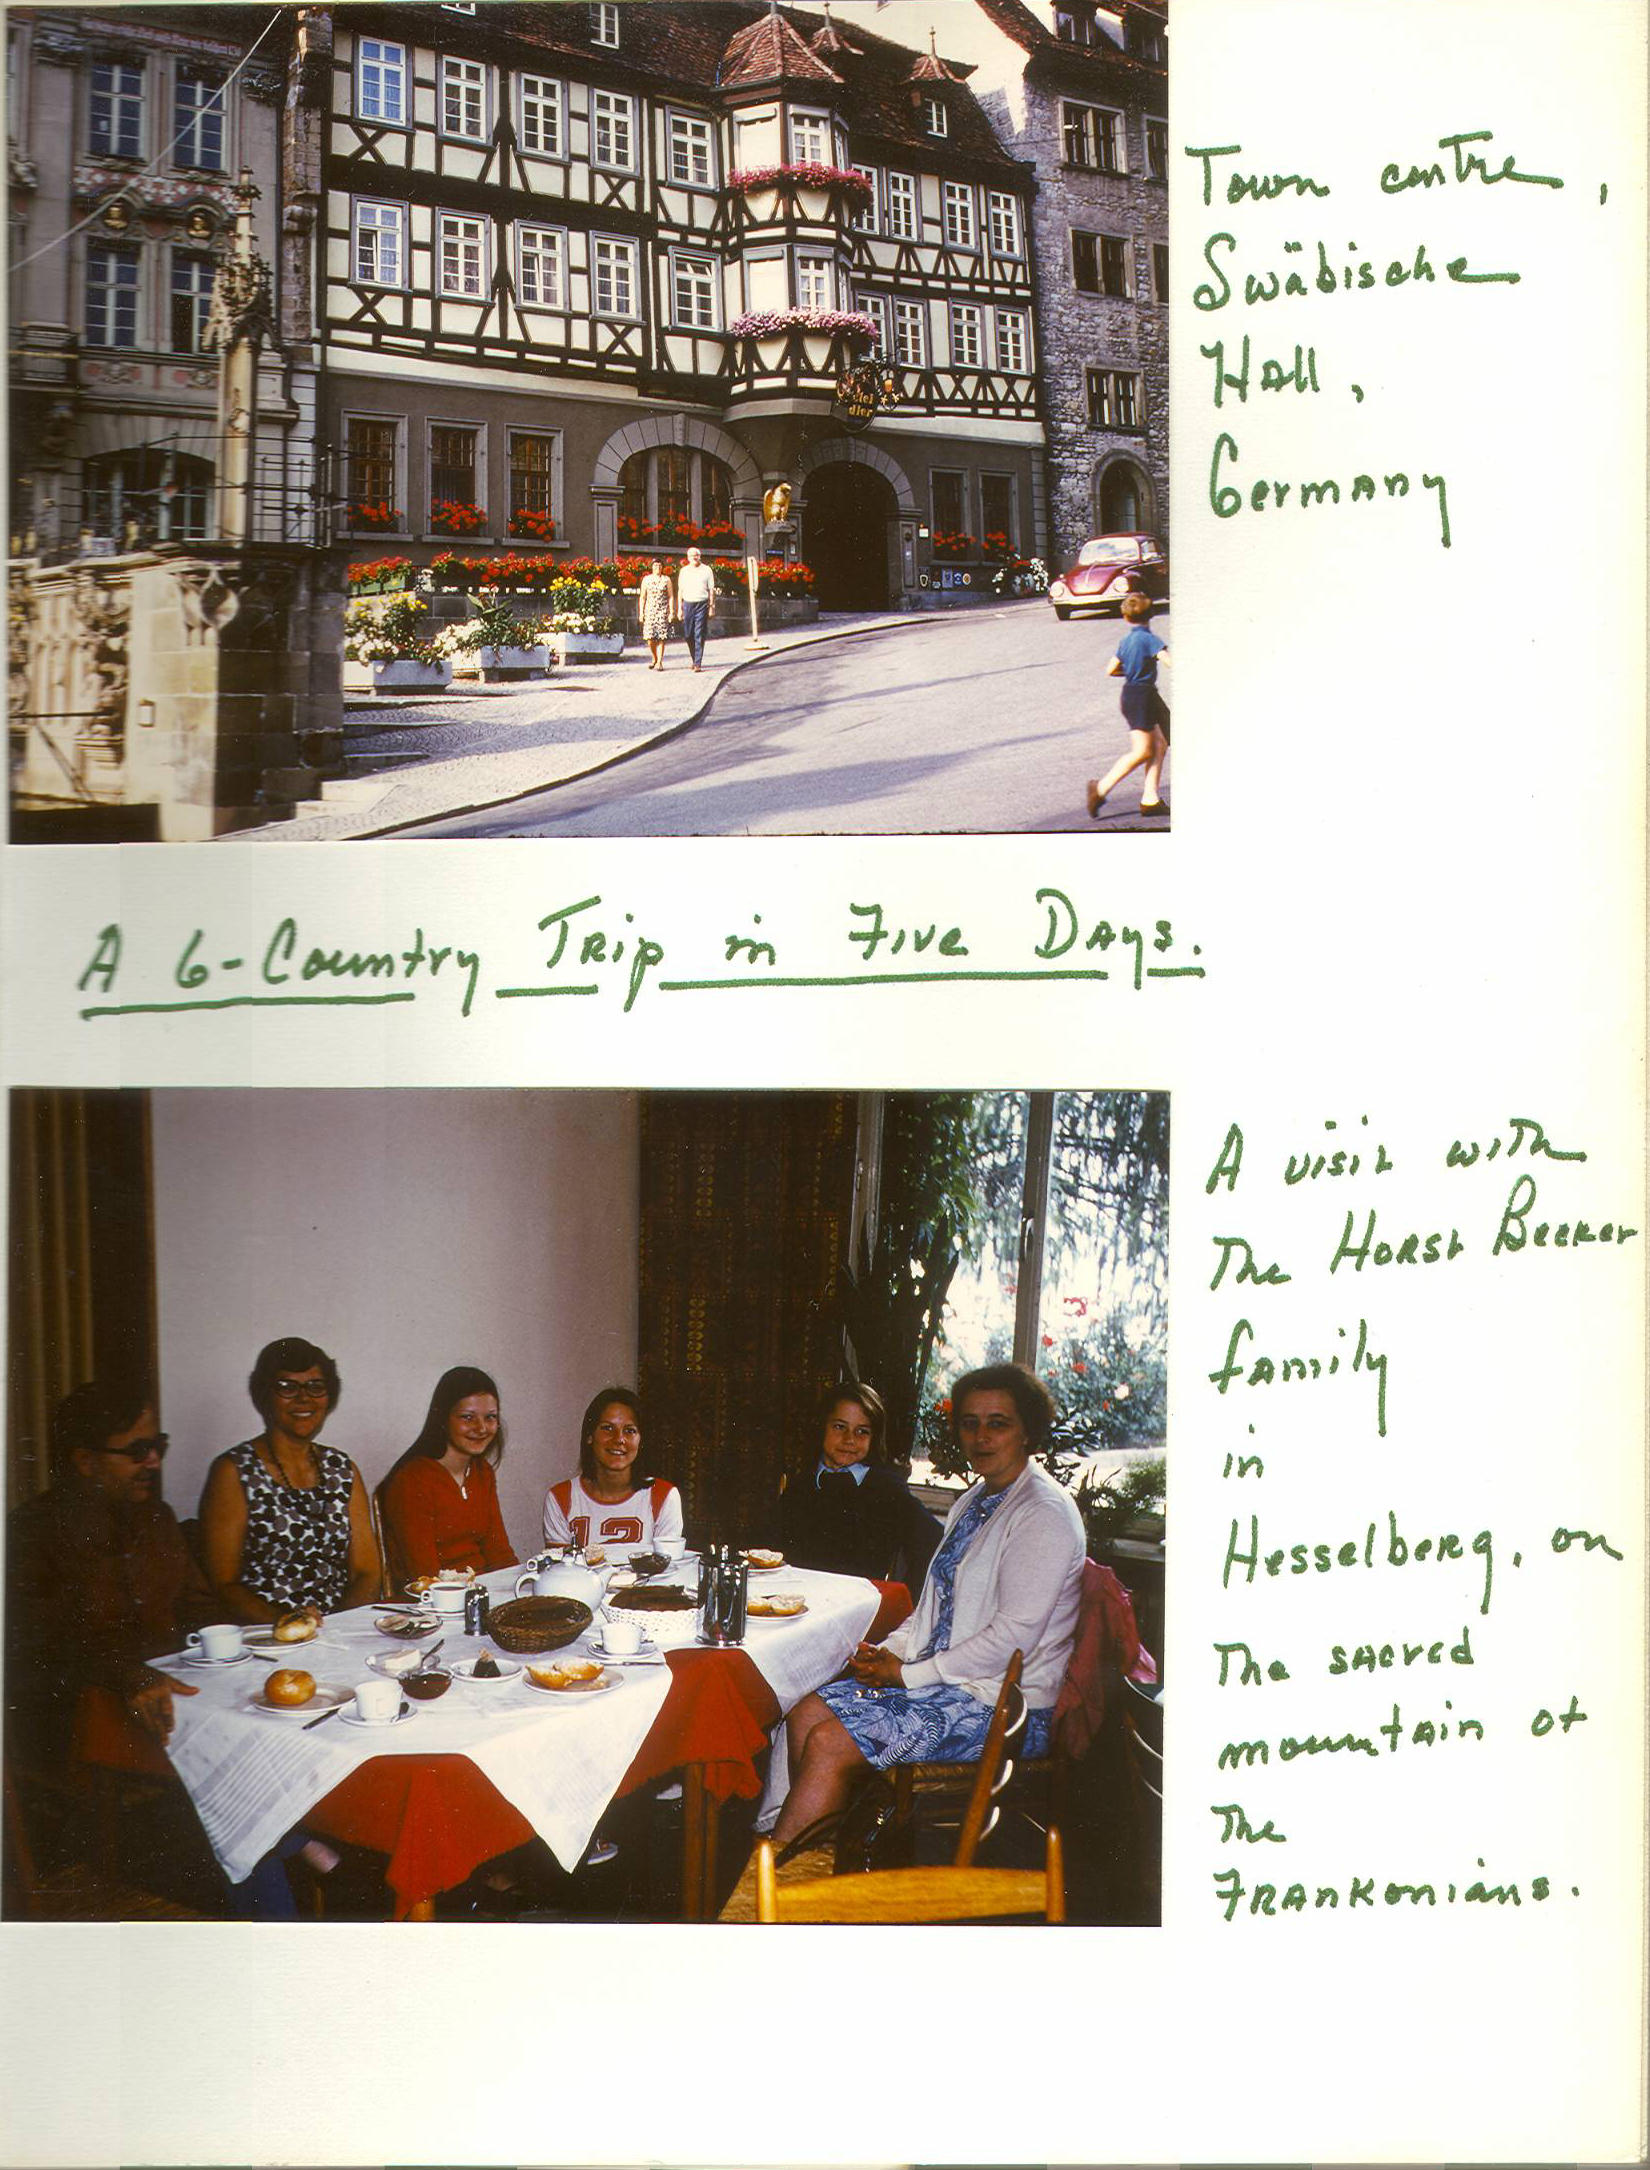 Town centre,
Swäbische
Hall,
Germany
Hotel
Adler
A 6-Country Trip in Five Days.
A visit with
The Horst Becker
family
in
Hesselberg, on
The sacred
mountain of
The
Frankonians.
12